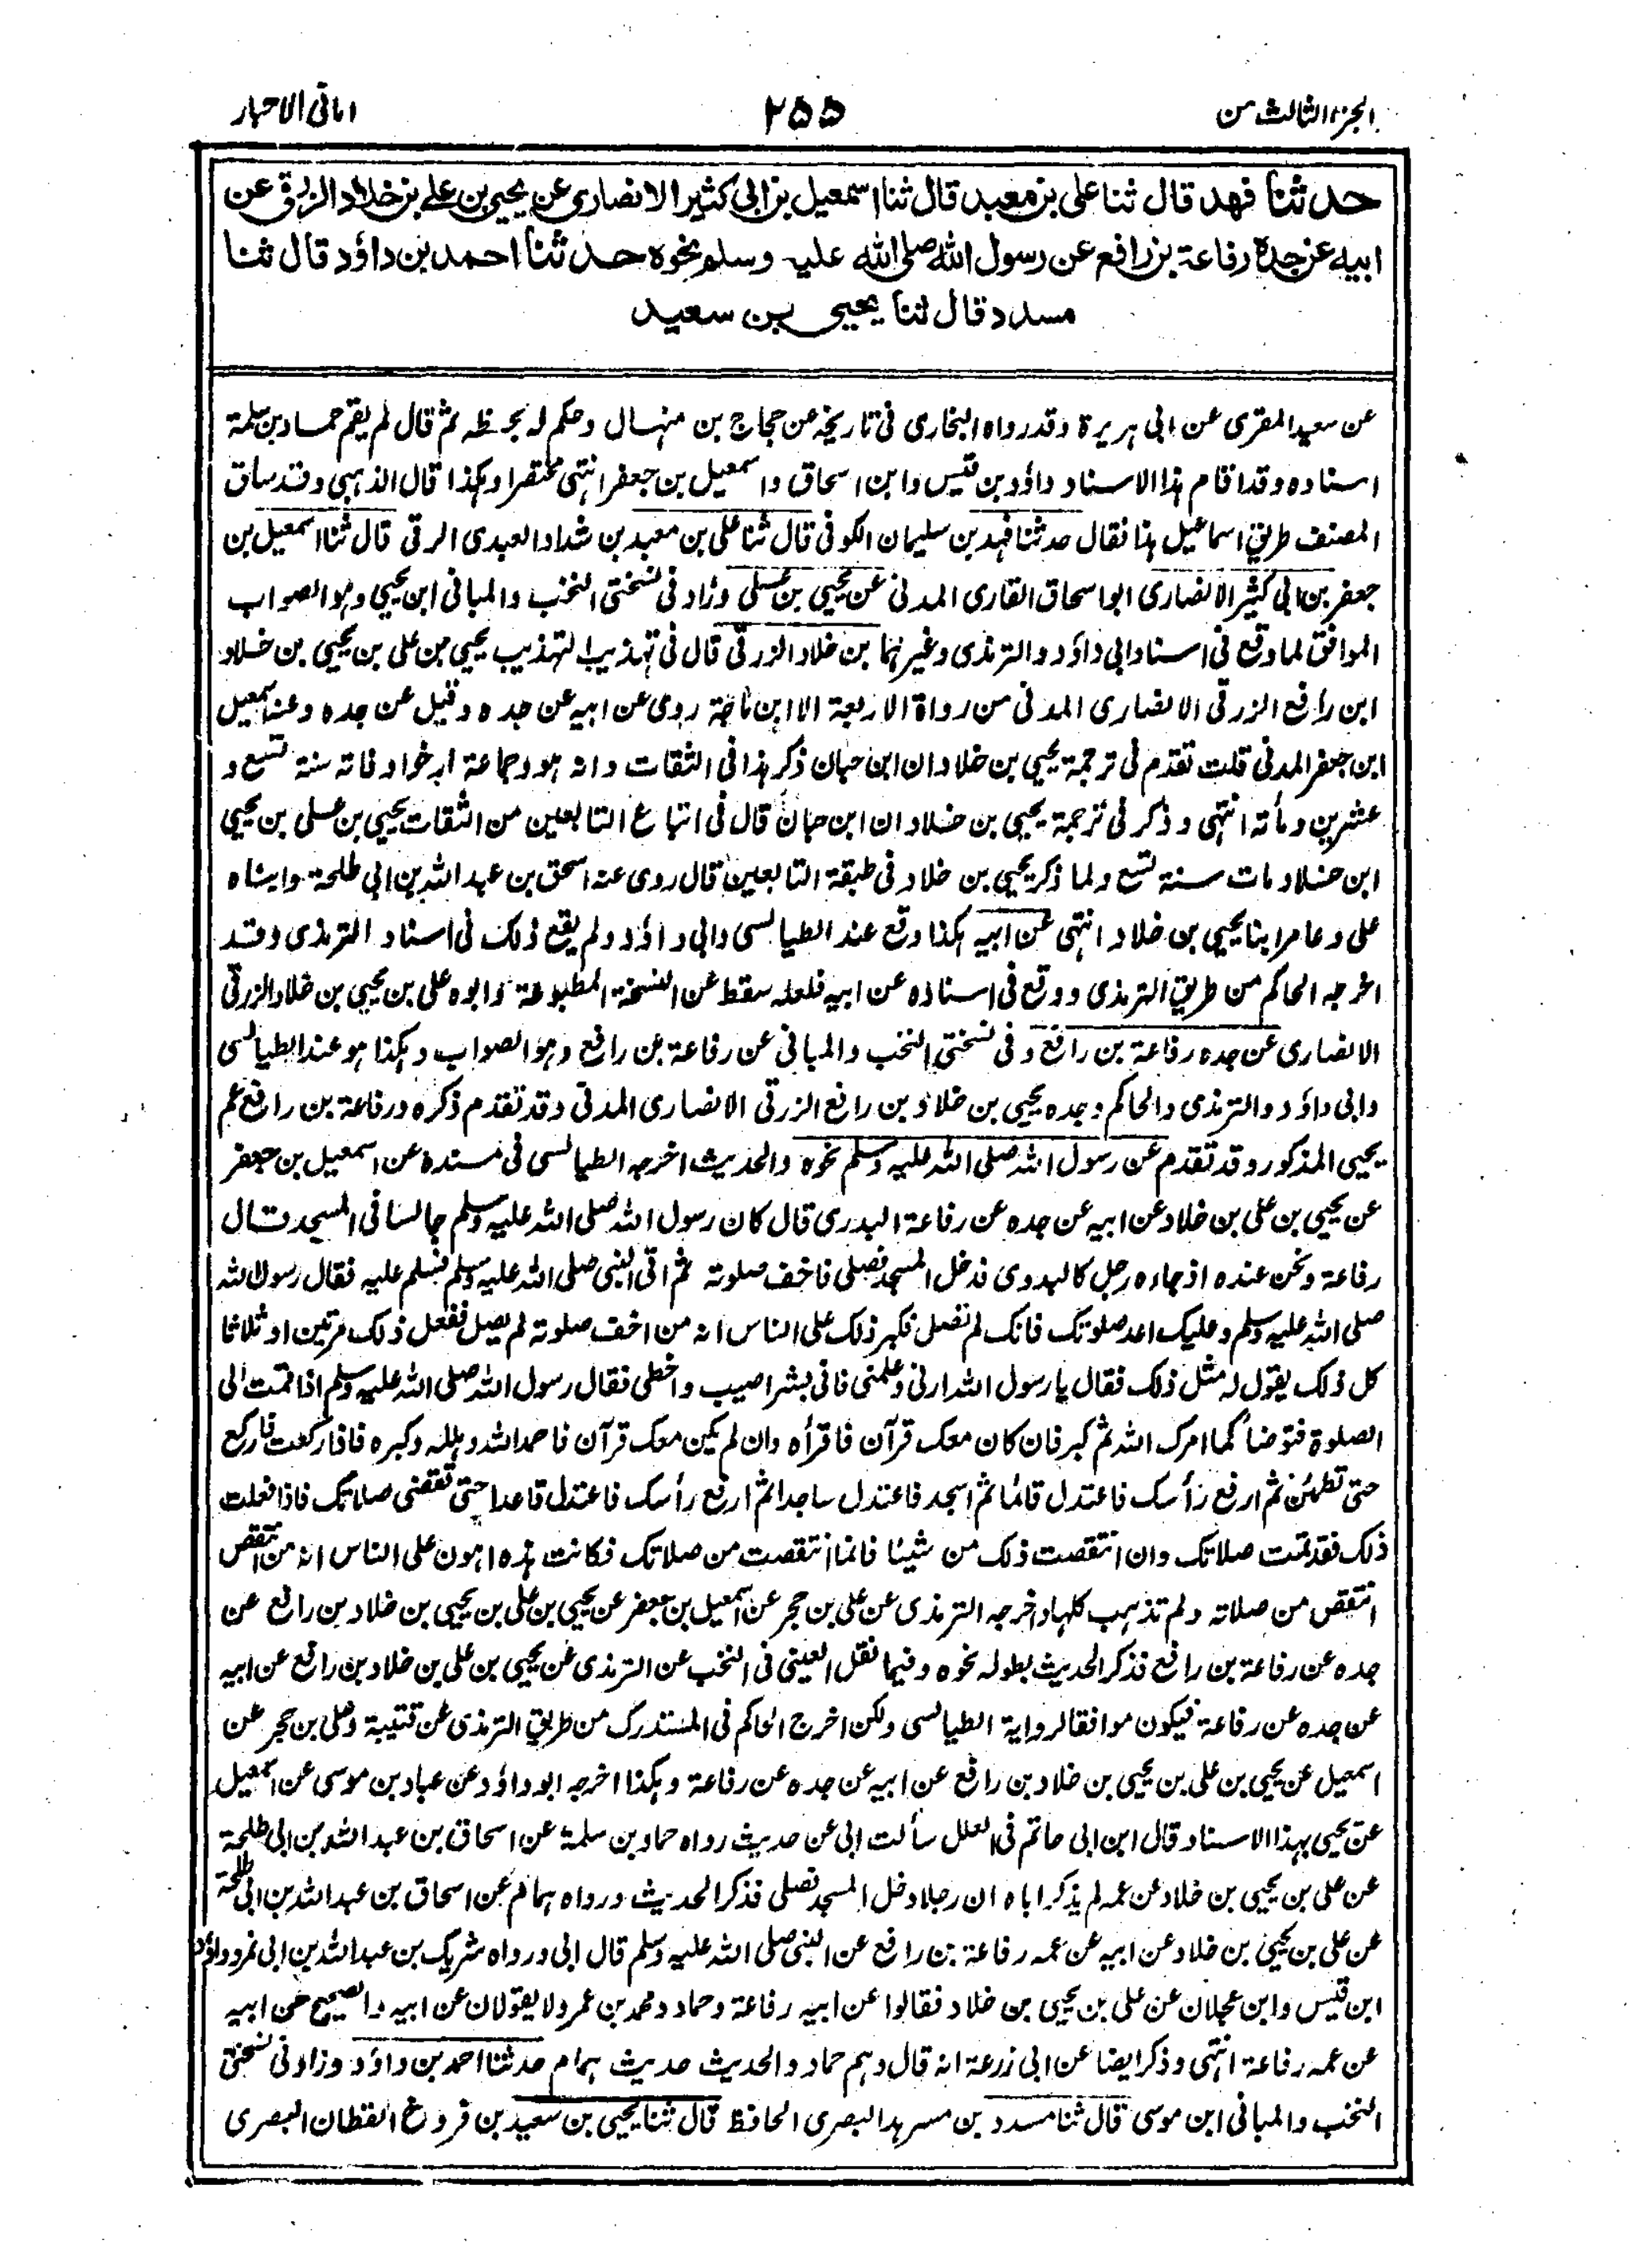 الجزء الثالث من
٢٥٥
امانی الاحبار
حدثنا فهد قال ثنا علی بن معبد قال ثنا اسمعیل بن ابی کثیر الانصاری عن یحیی بن علی بن خلاد الزرقی عن
ابیه عن جده رفاعة بن رافع عن رسول الله صلی الله علیه وسلم بنحوه حدثنا احمد بن داؤد قال ثنا
مسدد قال ثنا یحیی بن سعید
عن سعید المقری عن ابی هریرة وقد رواه البخاری فی تاریخه عن حجاج بن منهال وحکم له بحفظه ثم قال لم یقم حماد بن سلمة
اسناده وقد اقام هذا الاسناد داؤد بن قیس وابن اسحاق واسمعیل بن جعفر انتهی مختصرا وهکذا قال الذهبی وقد ساق
المصنف طریق اسماعیل هذا فقال حدثنا فهد بن سلیمان الکوفی قال ثنا علی بن معبد بن شداد العبدی الرقی قال ثنا اسمعیل بن
جعفر بن ابی کثیر الانصاری ابو اسحاق القاری المدنی عن یحیی بن علی وزاد فی نسختی النخب والمبانی ابن یحیی وهو الصواب
الموافق لما وقع فی اسناد ابی داؤد والترمذی وغیرهما بن خلاد الزرقی قال فی تهذیب التهذیب یحیی بن علی بن یحیی بن خلاد
ابن رافع الزرقی الانصاری المدنی من رواة الاربعة الا ابن ماجة روی عن ابیه عن جده وقیل عن جده وعنه اسمعیل
ابن جعفر المدنی قلت تقدم فی ترجمة یحیی بن خلاد ان ابن حبان ذکر هذا فی الثقات وانه هو وجماعة ارخوا وفاته سنة تسع و
عشرین ومأته انتهی وذکر فی ترجمة یحیی بن خلاد ان ابن حبان قال فی اتباع التابعین من الثقات یحیی بن علی بن یحیی
ابن خلاد مات سنة تسع ولما ذکر یحیی بن خلاد فی طبقة التابعین قال روی عنه اسحق بن عبد الله بن ابی طلحة وابناه
علی وعامر ابنا یحیی بن خلاد انتهی عن ابیه هکذا وقع عند الطیالسی وابی داؤد ولم یقع ذلک فی اسناد الترمذی وقد
اخرجه الحاکم من طریق الترمذی ووقع فی اسناده عن ابیه فلعله سقط عن النسخة المطبوعة وابوه علی بن یحیی بن خلاد الزرقی
الانصاری عن جده رفاعة بن رافع وفی نسختی النخب والمبانی عن رفاعة بن رافع وهو الصواب وهکذا هو عند الطیالسی
وابی داؤد والترمذی والحاکم وجده یحیی بن خلاد بن رافع الزرقی الانصاری المدنی وقد تقدم ذکره ورفاعة بن رافع عم
یحیی المذکور وقد تقدم عن رسول الله صلی الله علیه وسلم نحوه والحدیث اخرجه الطیالسی فی مسنده عن اسمعیل بن جعفر
عن یحیی بن علی بن خلاد عن ابیه عن جده عن رفاعة البدری قال کان رسول الله صلی الله علیه وسلم جالسا فی المسجد قال
رفاعة ونحن عنده اذ جاءه رجل کالبدوی فدخل المسجد فصلی فاخف صلوته ثم اتی النبی صلی الله علیه وسلم فسلم علیه فقال رسول الله
صلی الله علیه وسلم وعلیک اعد صلوتک فانک لم تصل فکبر ذلک علی الناس انه من اخف صلوته لم یصل ففعل ذلک مرتین او ثلاثا
کل ذلک یقول له مثل ذلک فقال یا رسول الله ارنی وعلمنی فانی بشر اصیب واخطی فقال رسول الله صلی الله علیه وسلم اذا قمت الی
الصلوة فتوضأ کما امرک الله ثم کبر فان کان معک قرآن فاقرأه وان لم یکن معک قرآن فاحمد الله وهلله وکبره فاذا رکعت فارکع
حتی تطمئن ثم ارفع رأسک فاعتدل قائما ثم اسجد فاعتدل ساجدا ثم ارفع رأسک فاعتدل قاعدا حتی تقضی صلاتک فاذا فعلت
ذلک فقد تمت صلاتک وان انتقصت ذلک من شیئا فانما انتقصت من صلاتک فکانت هذه اهون علی الناس انه من انتقص
انتقص من صلاته ولم تذهب کلها واخرجه الترمذی عن علی بن حجر عن اسمعیل بن جعفر عن یحیی بن علی بن یحیی بن خلاد بن رافع عن
جده عن رفاعة بن رافع فذکر الحدیث بطوله نحوه وفیما نقل العینی فی النخب عن الترمذی عن یحیی بن علی بن خلاد بن رافع عن ابیه
عن جده عن رفاعة فیکون موافقا لروایة الطیالسی ولکن اخرج الحاکم فی المستدرک من طریق الترمذی عن قتیبة وعلی بن حجر عن
اسمعیل عن یحیی بن علی بن یحیی بن خلاد بن رافع عن ابیه عن جده عن رفاعة وهکذا اخرجه ابو داؤد عن عباد بن موسی عن اسمعیل
عن یحیی بهذا الاسناد قال ابن ابی حاتم فی العلل سألت ابی عن حدیث رواه حماد بن سلمة عن اسحاق بن عبد الله بن ابی طلحة
عن علی بن یحیی بن خلاد عن عمه لم یذکر اباه ان رجلا دخل المسجد فصلی فذکر الحدیث ورواه همام عن اسحاق بن عبد الله بن ابی طلحة
عن علی بن یحیی بن خلاد عن ابیه عن عمه رفاعة بن رافع عن النبی صلی الله علیه وسلم قال ابی ورواه شریک بن عبد الله بن ابی نمر وداؤد
ابن قیس وابن عجلان عن علی بن یحیی بن خلاد فقالوا عن ابیه رفاعة وحماد ومحمد بن عمرو لا یقولان عن ابیه والصحیح عن ابیه
عن عمه رفاعة انتهی وذکر ایضا عن ابی زرعة انه قال وهم حماد والحدیث حدیث همام حدثنا احمد بن داؤد وزاد فی نسختی
النخب والمبانی ابن موسی قال ثنا مسدد بن مسرهد البصری الحافظ قال ثنا یحیی بن سعید بن فروخ القطان البصری